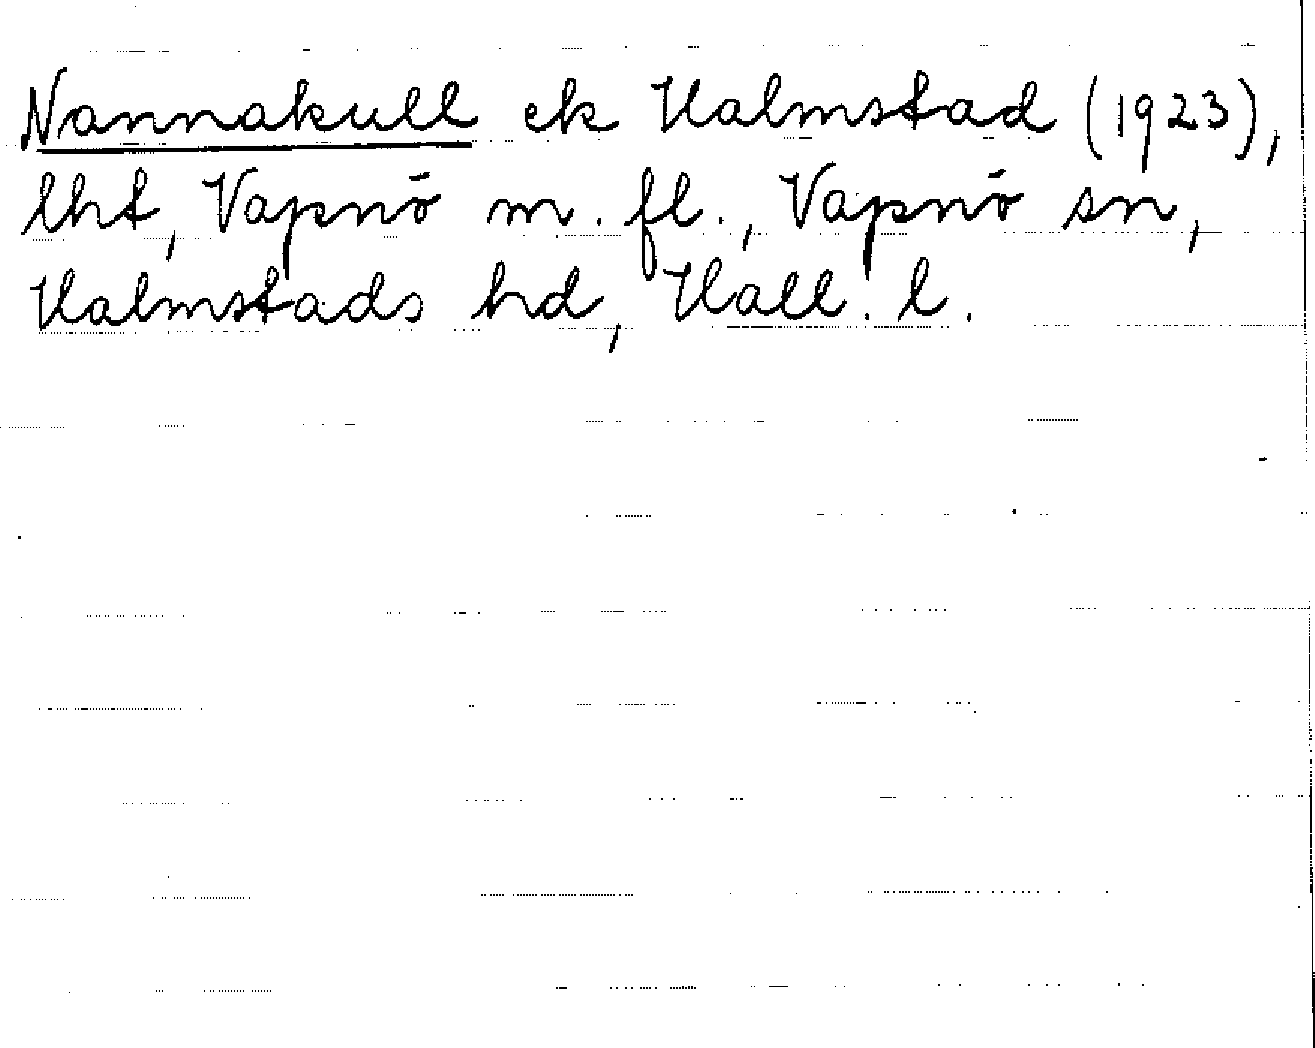 Nannakull ek Halmstad (1923),
lht, Vapnö m. fl., Vapnö sn,
Halmstads hd, Hall. l.